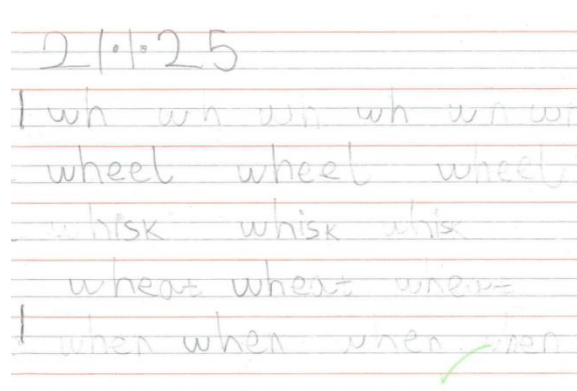 21.1.25
wh wh wh wh wh wh
wheel wheel wheel
whisk whisk whisk
wheat wheat wheat
when when when when